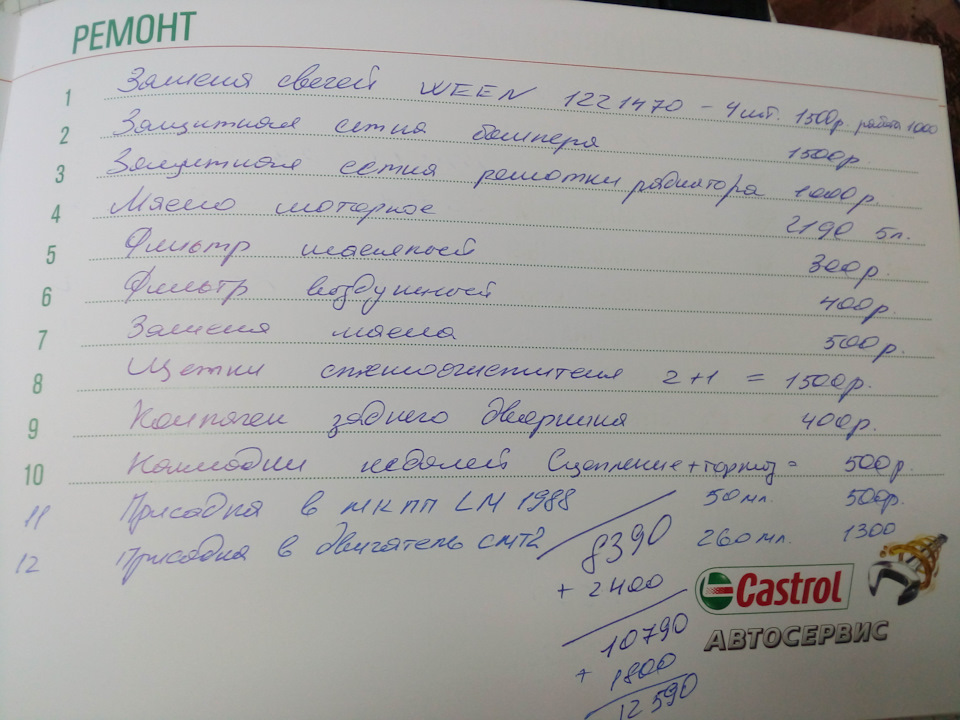 РЕМОНТ
1 Замена свечей WEEN 1221470 - 4шт. 1500р. работа 1000
2 Защитная сетка бампера 1500р.
3 Защитная сетка решотки радиатора 1000р.
4 Масло моторное 2190 5л.
5 Фильтр масляный 300р.
6 Фильтр воздушный 400р.
7 Замена масла 500р.
8 Щетки стеклоочистителя 2+1 = 1500р.
9 Колпачек заднего дворника 400р.
10 Накладки педалей Сцепление + тормоз = 500р.
11 Присадка в МКПП LM 1988 50мл. 500р.
12 Присадка в двигатель смт2 260мл. 1300
8390
+ 2400
10790
+ 1800
12590
Castrol
АВТОСЕРВИС